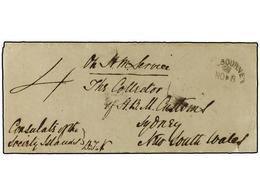 On H M Service
4
The Collector
of H.B.M. Customs
Sydney
New South Wales
Consulate of the
Society Islands
NO 8